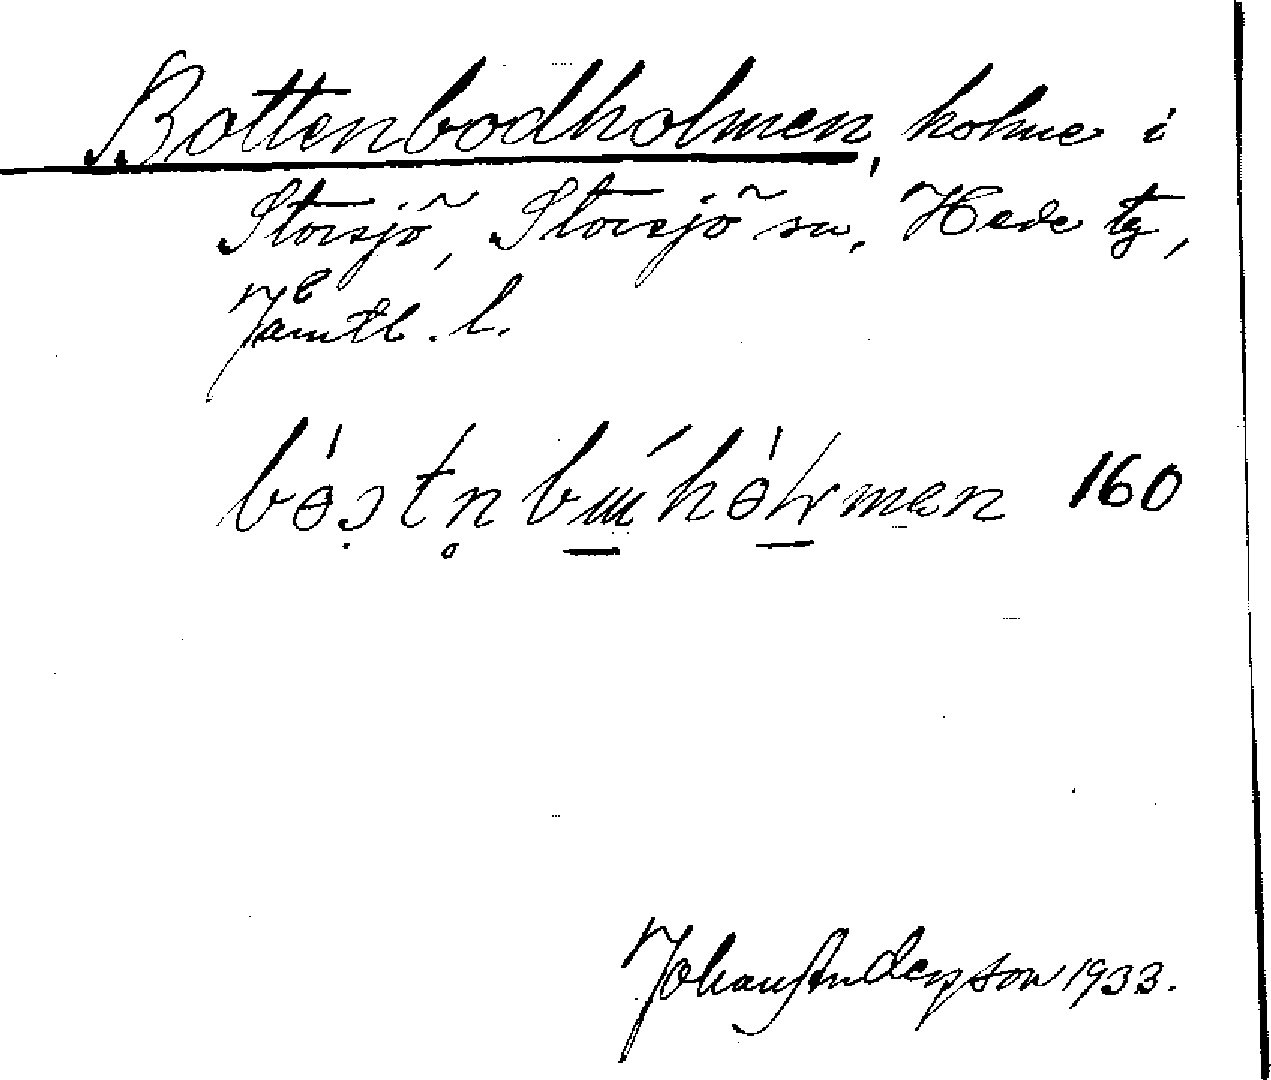 Bottenbodholmen, holme i
Storsjö, Storsjö sn, Hede tg,
Jämtl. l.
160
Johan Anderson 1933.